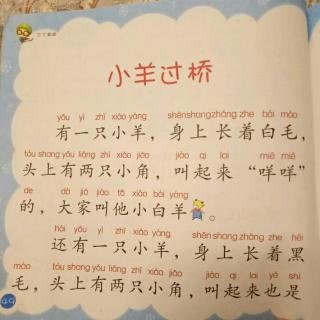 小羊过桥
yǒu yì zhī xiǎo yáng shēnshangzhǎng zhe bái máo
有一只小羊，身上长着白毛，
tóu shang yǒu liǎng zhī xiǎo jiǎo jiào qi lai miē miē
头上有两只小角，叫起来“咩咩”
de dà jiā jiào tā xiǎo bái yáng
的，大家叫他小白羊。
hái yǒu yì zhī xiǎo yáng shēn shang zhǎng zhe hēi
还有一只小羊，身上长着黑
máo tóu shang yǒu liǎng zhī xiǎo jiǎo jiào qi lai yě shì
毛，头上有两只小角，叫起来也是